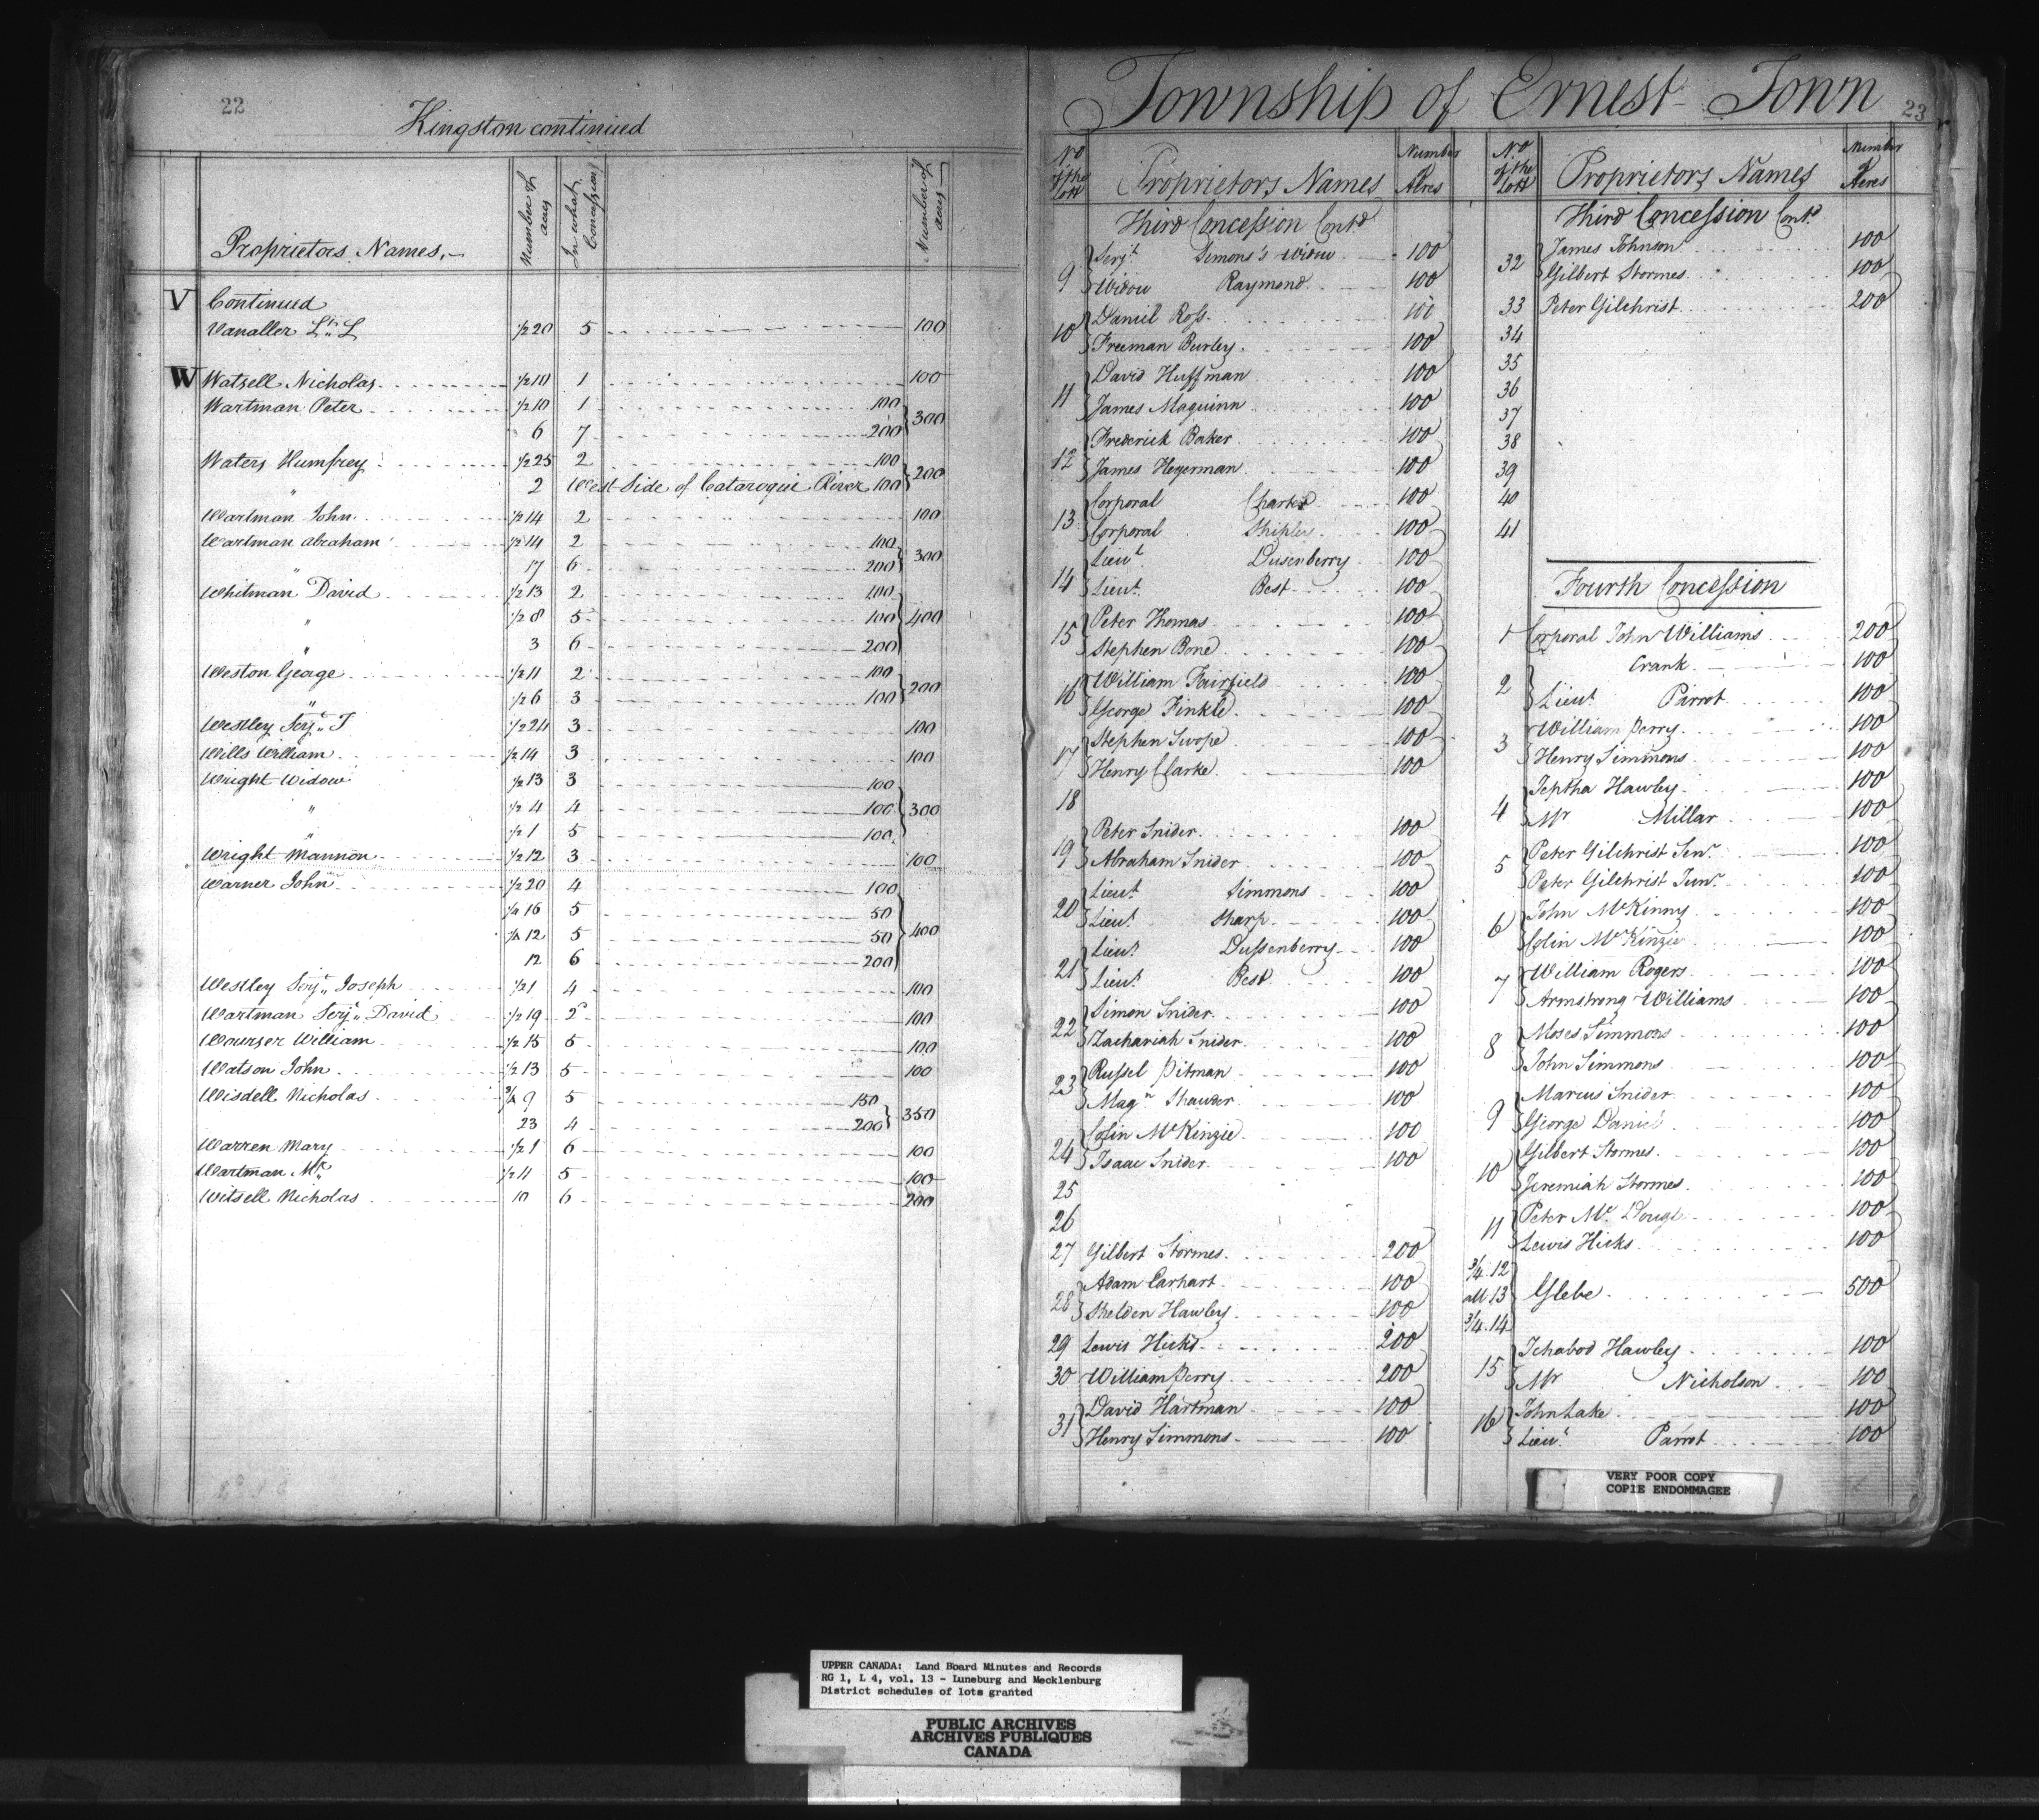 22
Kingston continued
Proprietors Names,
Number of acres
In what Concession
Number of acres
V Continued
Vanaller Lt. L 1/2 20 5 100
W Watsell Nicholas 1/2 10 1 100
Wartman Peter 1/2 10 1 100
6 7 200 } 300
Waters Humfrey 1/2 25 2 100
" 2 West Side of Cataroqui River 100 } 200
Wartman John 1/2 14 2 100
Wartman Abraham 1/2 14 2 100
" 17 6 200 } 300
Whitman David 1/2 13 2 100
" 1/2 8 5 100 } 400
" 3 6 200
Weston George 1/2 11 2 100
" 1/2 6 3 100 } 200
Westley Serj. T 1/2 24 3 100
Wills William 1/2 14 3 100
Wright Widow 1/2 13 3 100
" 1/2 4 4 100 } 300
" 1/2 1 5 100
Wright Mannon 1/2 12 3 100
Warner John 1/2 20 4 100
1/4 16 5 50
1/4 12 5 50 } 400
12 6 200
Westley Serj. Joseph 1/2 1 4 100
Wartman Serj. David 1/2 19 2 100
William 1/2 15 5 100
Watson John 1/2 13 5 100
Wisdell Nicholas 3/4 9 5 150
23 4 200 } 350
Warren Mary 1/2 1 6 100
Wartman Mr. 1/2 11 5 100
Witsell Nicholas 10 6 200
Township of Ernest Town
23
No of the Lott
Proprietors Names
Number Acres
Third Concession Contd
9 { Serjt. Simons's Widow 100
Widow Raymond 100
10 { Daniel Ross 100
Freeman Burley 100
11 { David Huffman 100
James Maguinn 100
12 { Frederick Baker 100
James Hegerman 100
13 { Corporal Charter 100
Corporal Shipley 100
14 { Lieut. Dusenberry 100
Lieut. Best 100
15 { Peter Thomas 100
Stephen Bone 100
16 { William Fairfield 100
George Finkle 100
17 { Stephen Swope 100
Henry Clarke 100
18
19 { Peter Snider 100
Abraham Snider 100
20 { Lieut. Simmons 100
Lieut. Sharp 100
21 { Lieut. Dussenberry 100
Lieut. Best 100
22 { Simon Snider 100
Zachariah Snider 100
23 { Russel Pitman 100
Magn. Shawer 100
24 { Colin McKinzie 100
Isaac Snider 100
25
26
27 Gilbert Stormes 200
28 { Adam Carhart 100
Shelden Hawley 100
29 Lewis Hicks 200
30 William Perry 200
31 { David Hartman 100
Henry Simmons 100
No of the Lott
Proprietors Names
Number of Acres
Third Concession Contd
32 { James Johnson 100
Gilbert Stormes 100
33 Peter Gilchrist 200
34
35
36
37
38
39
40
41
Fourth Concession
1 Corporal John Williams 200
2 { Crank 100
Lieut. Parrot 100
3 { William Perry 100
Henry Simmons 100
4 { Jeptha Hawley 100
Mr Millar 100
5 { Peter Gilchrist Senr. 100
Peter Gilchrist Junr. 100
6 { John McKinny 100
Colin McKinzie 100
7 { William Rogers 100
Armstrong Williams 100
8 { Moses Simmons 100
John Simmons 100
9 { Marcus Snider 100
George Daniel 100
10 { Gilbert Stormes 100
Jeremiah Stormes 100
11 { Peter McDougle 100
Lewis Hicks 100
3/4 12
all 13 } Glebe 500
3/4 14
15 { Ichabod Hawley 100
Mr Nicholson 100
16 { John Lake 100
Lieut. Parrot 100
VERY POOR COPY
COPIE ENDOMMAGEE
UPPER CANADA: Land Board Minutes and Records
RG 1, L 4, vol. 13 - Luneburg and Mecklenburg
District schedules of lots granted
PUBLIC ARCHIVES
ARCHIVES PUBLIQUES
CANADA